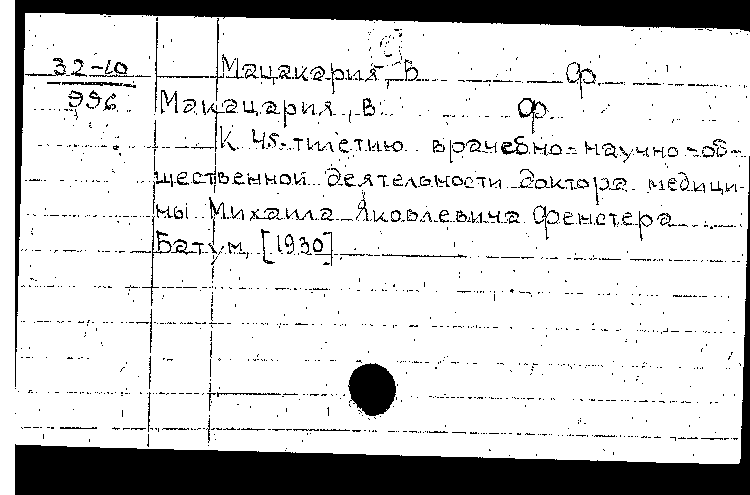 32-10 Мацакария, В. Ф.
996 Макацария, В. Ф.
К 45-тилетию врачебно-научно-об-
щественной деятельности доктора медици-
ны Михаила Яковлевича Фенстера
Батум, [1930].